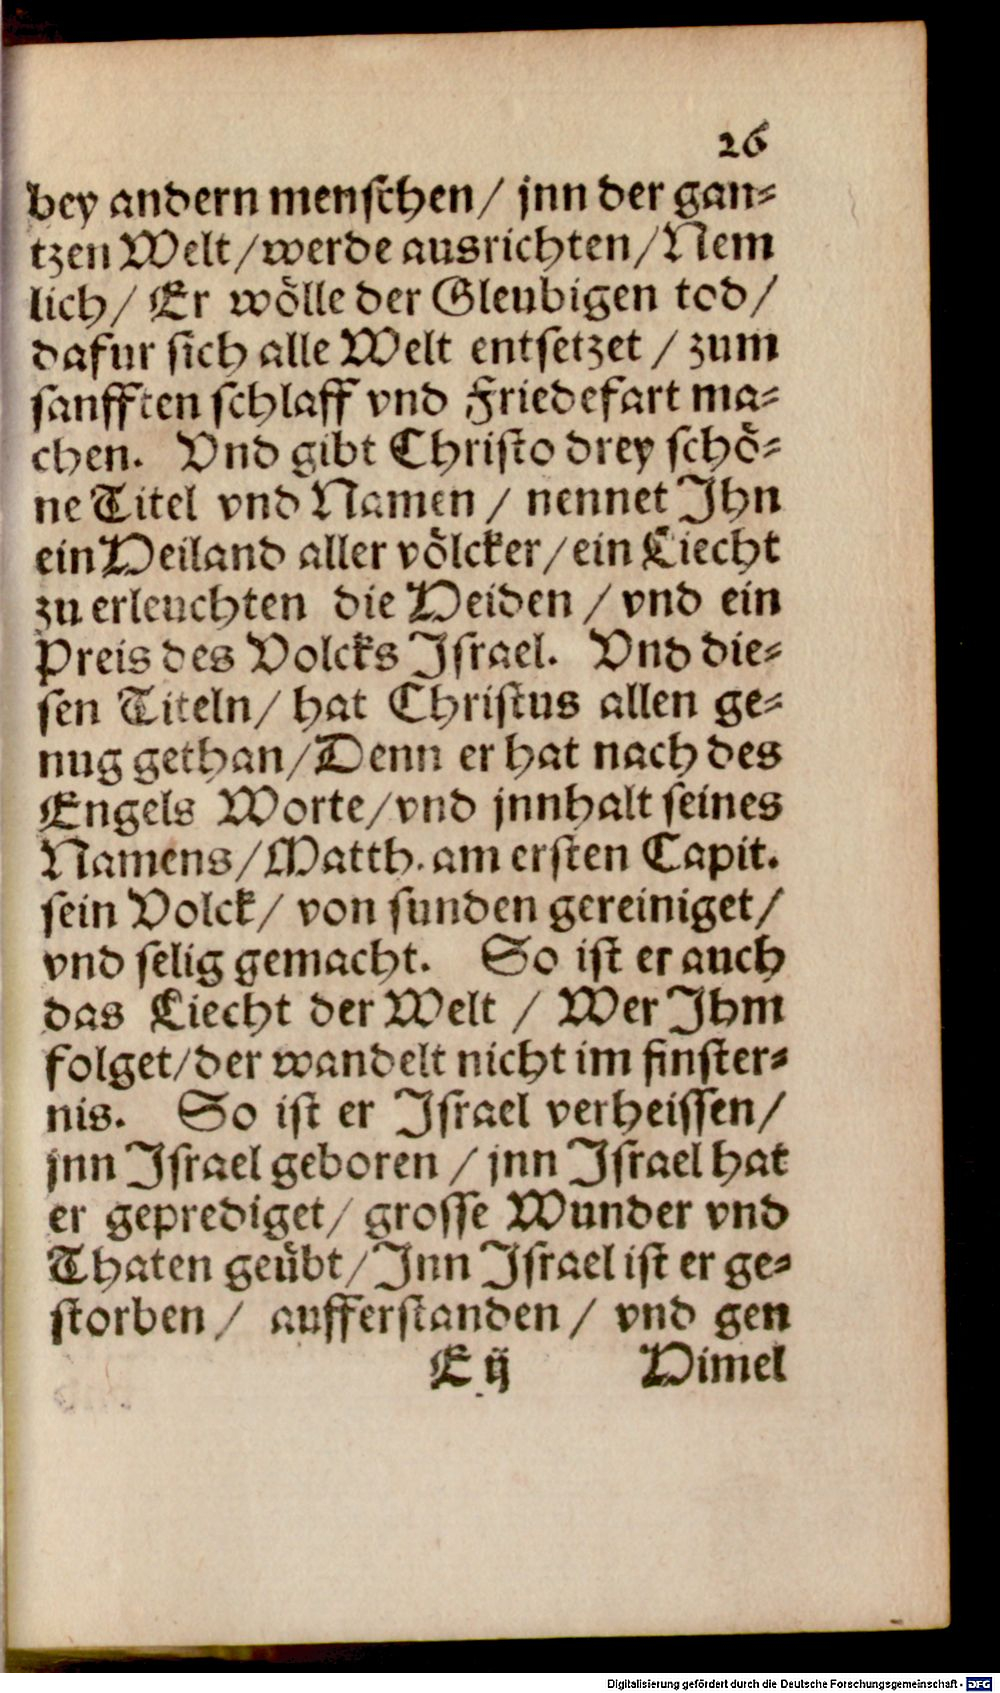 26
bey andern menschen/ jnn der gan-
tzen Welt/werde ausrichten/Nem
lich/ Er wölle der Gleubigen tod/
dafur sich alle Welt entsetzet / zum
sanfften schlaff vnd Friedefart ma-
chen. Vnd gibt Christo drey schö-
ne Titel vnd Namen / nennet Ihn
ein Heiland aller völcker/ein Liecht
zu erleuchten die Heiden / vnd ein
Preis des Volcks Israel. Vnd die-
sen Titeln/ hat Christus allen ge-
nug gethan/Denn er hat nach des
Engels Worte/vnd jnnhalt seines
Namens/Matth. am ersten Capit.
sein Volck/ von sunden gereiniget/
vnd selig gemacht. So ist er auch
das Liecht der Welt / Wer Ihm
folget/der wandelt nicht im finster-
nis. So ist er Israel verheissen/
jnn Israel geboren / jnn Israel hat
er geprediget/ grosse Wunder vnd
Thaten geübt/Inn Israel ist er ge-
storben/ aufferstanden / vnd gen
E ij Himel
Digitalisierung gefördert durch die Deutsche Forschungsgemeinschaft - DFG